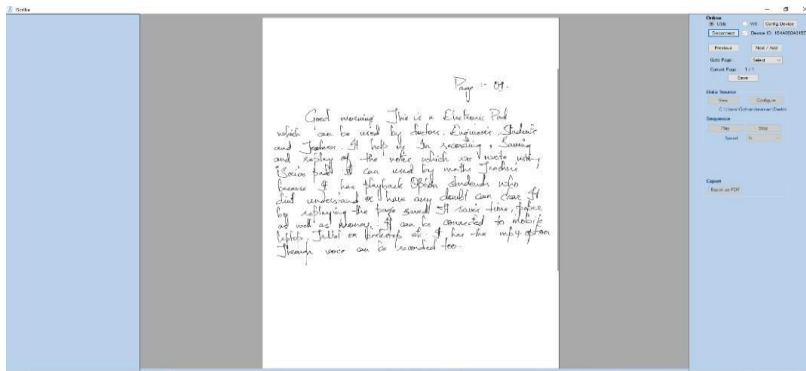 Scribe
Page :- 01.
Good morning This is a Electronic Pad
which can be used by doctors. Engineers. Students
and Teachers. It help us In recording, Saving
and replay of the notes which we write using
pad It can used by maths Teachers
because It has playback Option students who
did't understand or have any doubt can clear It
by replaying the page saved It saves time, paper
as well as money. It can be connected to mobile
laptop, Tablet or It has the mp4 option
Through voice can be recorded too.
Online
USB
Wifi
Config Device
Disconnect
Device ID:
Previous
Next / Add
Goto Page
Select
Current Page
1 / 1
Save
Data Source
View
Configure
Sequence
Play
Stop
Speed
Export
Export as PDF